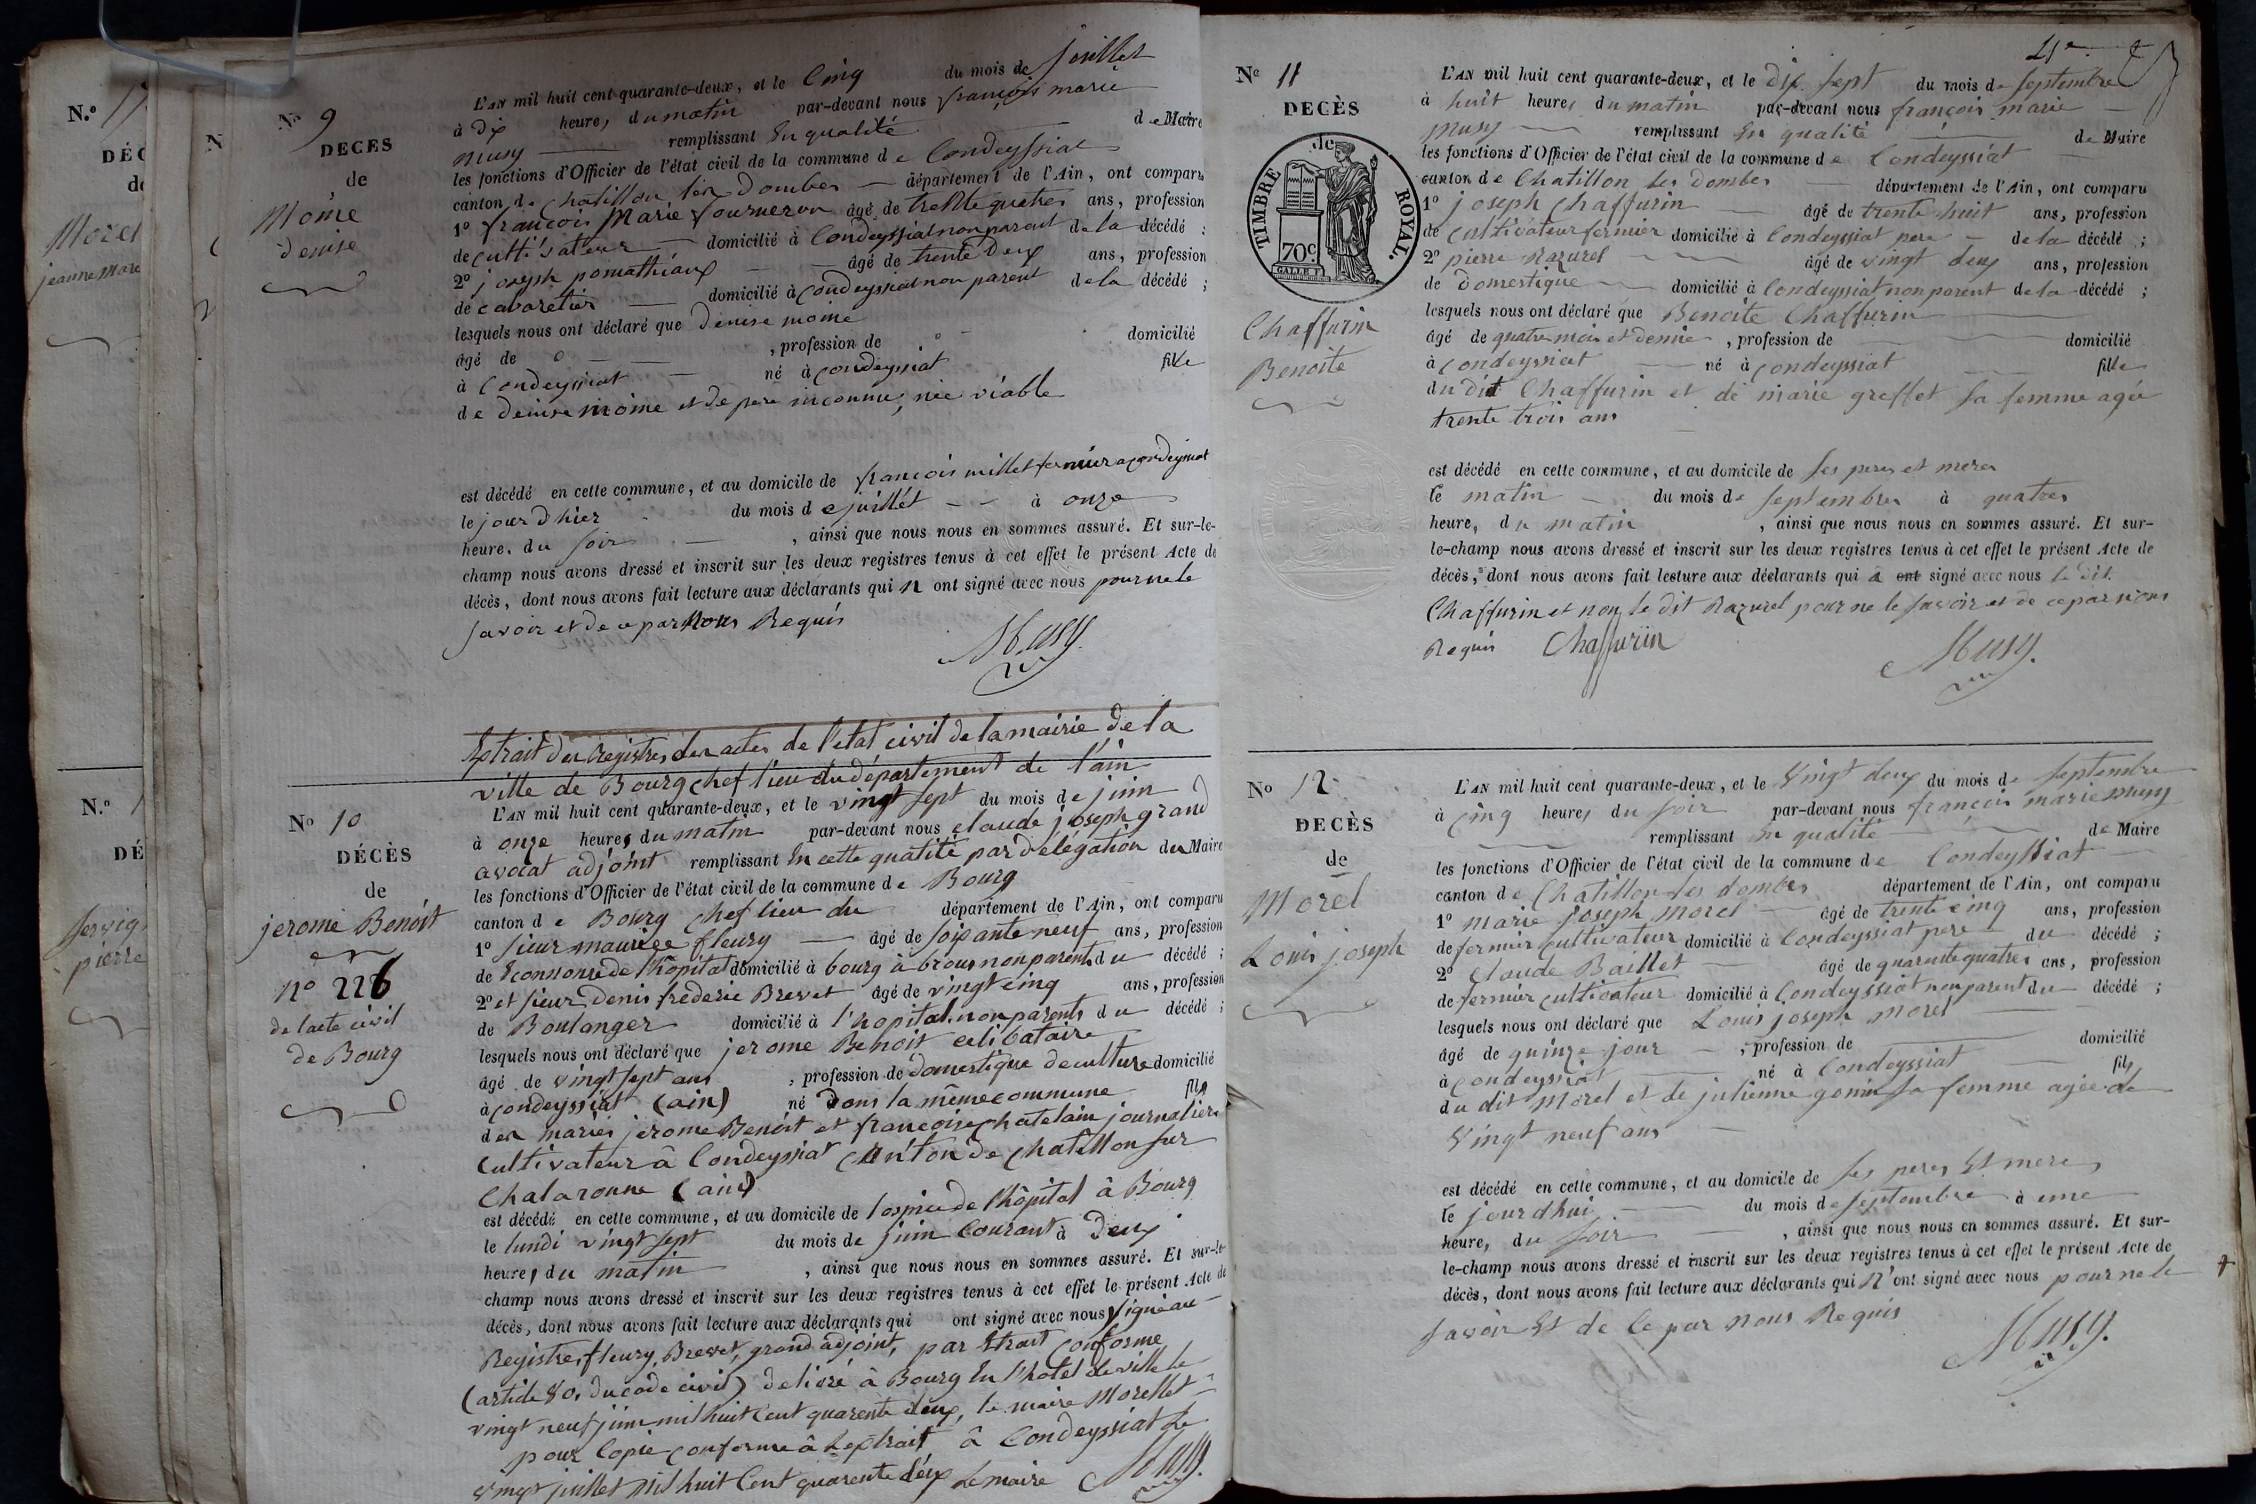 N.º 17
DÉC
de
Morel
jeanne Marie
N.º 1
DÉ
pierre
N
Nº 9
DÉCÈS
de
Moine
Denise
L'AN mil huit cent quarante-deux, et le Cinq du mois de Juillet
à dix heures du matin par-devant nous françois marie
musy remplissant En qualité de Maire
les fonctions d'Officier de l'état civil de la commune de Condeyssiat
canton de Chatillon les Dombes département de l'Ain, ont comparu
1º françois Marie fourneron âgé de trente quatres ans, profession
de cultivateur domicilié à Condeyssiat non parent de la décédé ;
2º joseph pomathiaux âgé de trente Deux ans, profession
de cabaretier domicilié à Condeyssiat non parent de la décédé ;
lesquels nous ont déclaré que Denise moine
âgé de , profession de domicilié
à Condeyssiat né à Condeyssiat fille
de Denise moine et de pere inconnue, née viable
est décédé en cette commune, et au domicile de françois millet fermier a Condeyssiat
le jour d'hier du mois de juillet à onze
heure, du soir , ainsi que nous nous en sommes assuré. Et sur-le-
champ nous avons dressé et inscrit sur les deux registres tenus à cet effet le présent Acte de
décès, dont nous avons fait lecture aux déclarants qui n ont signé avec nous pour ne le
savoir et de ce par Nous Requis
Musy
Extrait des Registres des actes de l'etat civil de la mairie de la
ville de Bourg chef lieu du département de l'ain
Nº 10
DÉCÈS
de
jerome Benoit
nº 226
de lacte civil
de Bourg
L'AN mil huit cent quarante-deux, et le vingt sept du mois de juin
à onze heures du matin par-devant nous claude joseph grand
avocat adjoint remplissant En cette qualité par délégation du Maire
les fonctions d'Officier de l'état civil de la commune de Bourg
canton de Bourg chef lieu du département de l'Ain, ont comparu
1º sieur fleury âgé de soixante neuf ans, profession
de Econome de l'hôpital domicilié à bourg à brou non parents du décédé ;
2º et sieur Denis frederic Brevet âgé de vingt cinq ans, profession
de Boulanger domicilié à l'hopital non parents du décédé ;
lesquels nous ont déclaré que jerome Benoit celibataire
âgé de vingt sept ans , profession de domestique de culture domicilié
à condeyssiat (ain) né dans la même commune fils
des mariés jerome Benoit et françoise chatelain journaliers
cultivateur à Condeyssiat Canton de chatillon sur
Chalaronne (ain)
est décédé en cette commune, et au domicile de l'ospice de l'hôpital à Bourg
le lundi vingt sept du mois de juin courant à Deux
heures du matin , ainsi que nous nous en sommes assuré. Et sur-le-
champ nous avons dressé et inscrit sur les deux registres tenus à cet effet le présent Acte de
décès, dont nous avons fait lecture aux déclarants qui ont signé avec nous signé au
Registre, fleury, Brevet, grand adjoint, par Extrait conforme
(article 80, du code civil) delivré à Bourg En l'hôtel de ville le
vingt neuf juin mil huit Cent quarente deux, le maire Morellet
pour Copie conforme à l'extrait à Condeyssiat Le
vingt juillet mil huit Cent quarente deux Le maire Musy
Nº 11
DÉCÈS
de
TIMBRE ROYAL.
70c
Chaffurin
Benoite
L'AN mil huit cent quarante-deux, et le dix sept du mois de septembre
à huit heures du matin par-devant nous françois marie
musy remplissant En qualité de Maire
les fonctions d'Officier de l'état civil de la commune de Condeyssiat
canton de Chatillon les Dombes département de l'Ain, ont comparu
1º joseph Chaffurin âgé de trente huit ans, profession
de Cultivateur fermier domicilié à Condeyssiat pere de la décédé ;
2º pierre Razurel âgé de vingt deux ans, profession
de Domestique domicilié à Condeyssiat non parent de la décédé ;
lesquels nous ont déclaré que Benoite Chaffurin
âgé de quatre mois et demie , profession de domicilié
à condeyssiat né à Condeyssiat fille
du dit Chaffurin et de marie greffet sa femme agée
trente trois ans
est décédé en cette commune, et au domicile de ses peres et meres
le matin du mois de septembres à quatres
heure, du matin , ainsi que nous nous en sommes assuré. Et sur-
le-champ nous avons dressé et inscrit sur les deux registres tenus à cet effet le présent Acte de
décès, dont nous avons fait lecture aux déclarants qui a ont signé avec nous le dit
Chaffurin et non le dit Razurel pour ne le savoir et de ce par nous
Requis Chaffurin Musy
Nº 12
DÉCÈS
de
Morel
Louis joseph
L'AN mil huit cent quarante-deux, et le Vingt deux du mois de septembre
à cinq heures du soir par-devant nous françois marie musy
remplissant En qualité de Maire
les fonctions d'Officier de l'état civil de la commune de Condeyssiat
canton de Chatillon les dombes département de l'Ain, ont comparu
1º Marie joseph Morel âgé de trente cinq ans, profession
de fermier cultivateur domicilié à Condeyssiat pere du décédé ;
2º claude Baillet âgé de quarente quatres ans, profession
de fermier cultivateur domicilié à Condeyssiat non parent du décédé ;
lesquels nous ont déclaré que Louis joseph morel
âgé de quinze jour , profession de domicilié
à Condeyssiat né à Condeyssiat fils
du dit Morel et de julienne gonin sa femme agée de
Vingt neuf ans
est décédé en cette commune, et au domicile de ses peres Et meres
le jourdhui du mois de septembre à une
heure, du soir , ainsi que nous nous en sommes assuré. Et sur-
le-champ nous avons dressé et inscrit sur les deux registres tenus à cet effet le présent Acte de
décès, dont nous avons fait lecture aux déclarants qui n'ont signé avec nous pour ne le
savoir Et de ce par nous Requis
Musy.